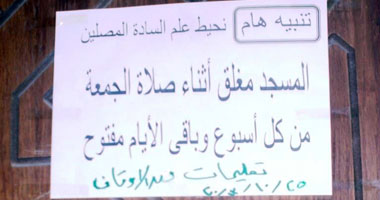 تنبيه هام نحيط علم السادة المصلين
المسجد مغلق أثناء صلاة الجمعة
من كل أسبوع وباقى الأيام مفتوح
تعليمات الأوقاف